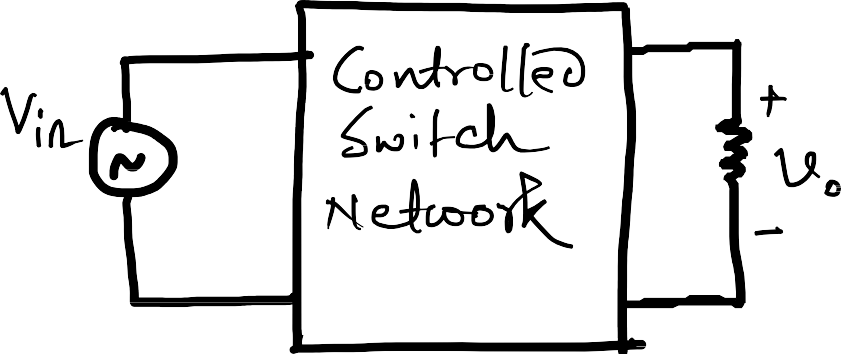 Vin
~
Controlled
Switch
Network
+
υo
-